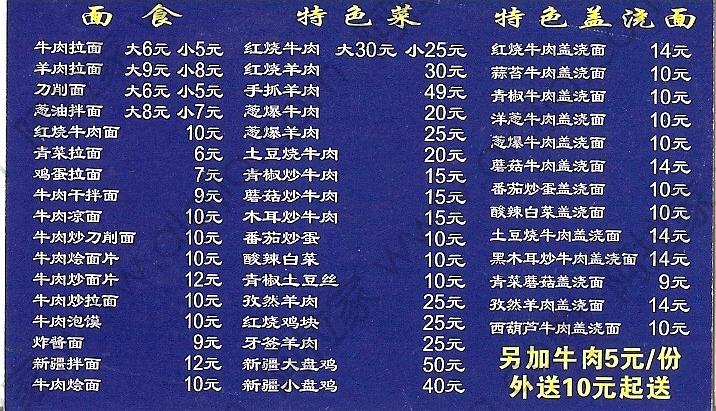 面食
牛肉拉面 大6元 小5元
羊肉拉面 大9元 小8元
刀削面 大6元 小5元
葱油拌面 大8元 小7元
红烧牛肉面 10元
青菜拉面 6元
鸡蛋拉面 7元
牛肉干拌面 9元
牛肉凉面 10元
牛肉炒刀削面 10元
牛肉烩面片 10元
牛肉炒面片 12元
牛肉炒拉面 10元
牛肉泡馍 10元
炸酱面 9元
新疆拌面 12元
牛肉烩面 10元
特色菜
红烧牛肉 大30元 小25元
红烧羊肉 30元
手抓羊肉 49元
葱爆牛肉 20元
葱爆羊肉 25元
土豆烧牛肉 20元
青椒炒牛肉 15元
蘑菇炒牛肉 15元
木耳炒牛肉 15元
番茄炒蛋 10元
酸辣白菜 10元
青椒土豆丝 10元
孜然羊肉 25元
红烧鸡块 25元
牙签羊肉 25元
新疆大盘鸡 50元
新疆小盘鸡 40元
特色盖浇面
红烧牛肉盖浇面 14元
蒜苔牛肉盖浇面 10元
青椒牛肉盖浇面 10元
洋葱牛肉盖浇面 10元
葱爆牛肉盖浇面 10元
蘑菇牛肉盖浇面 14元
番茄炒蛋盖浇面 10元
酸辣白菜盖浇面 10元
土豆烧牛肉盖浇面 14元
黑木耳炒牛肉盖浇面 14元
青菜蘑菇盖浇面 9元
孜然羊肉盖浇面 14元
西葫芦牛肉盖浇面 10元
另加牛肉5元/份
外送10元起送